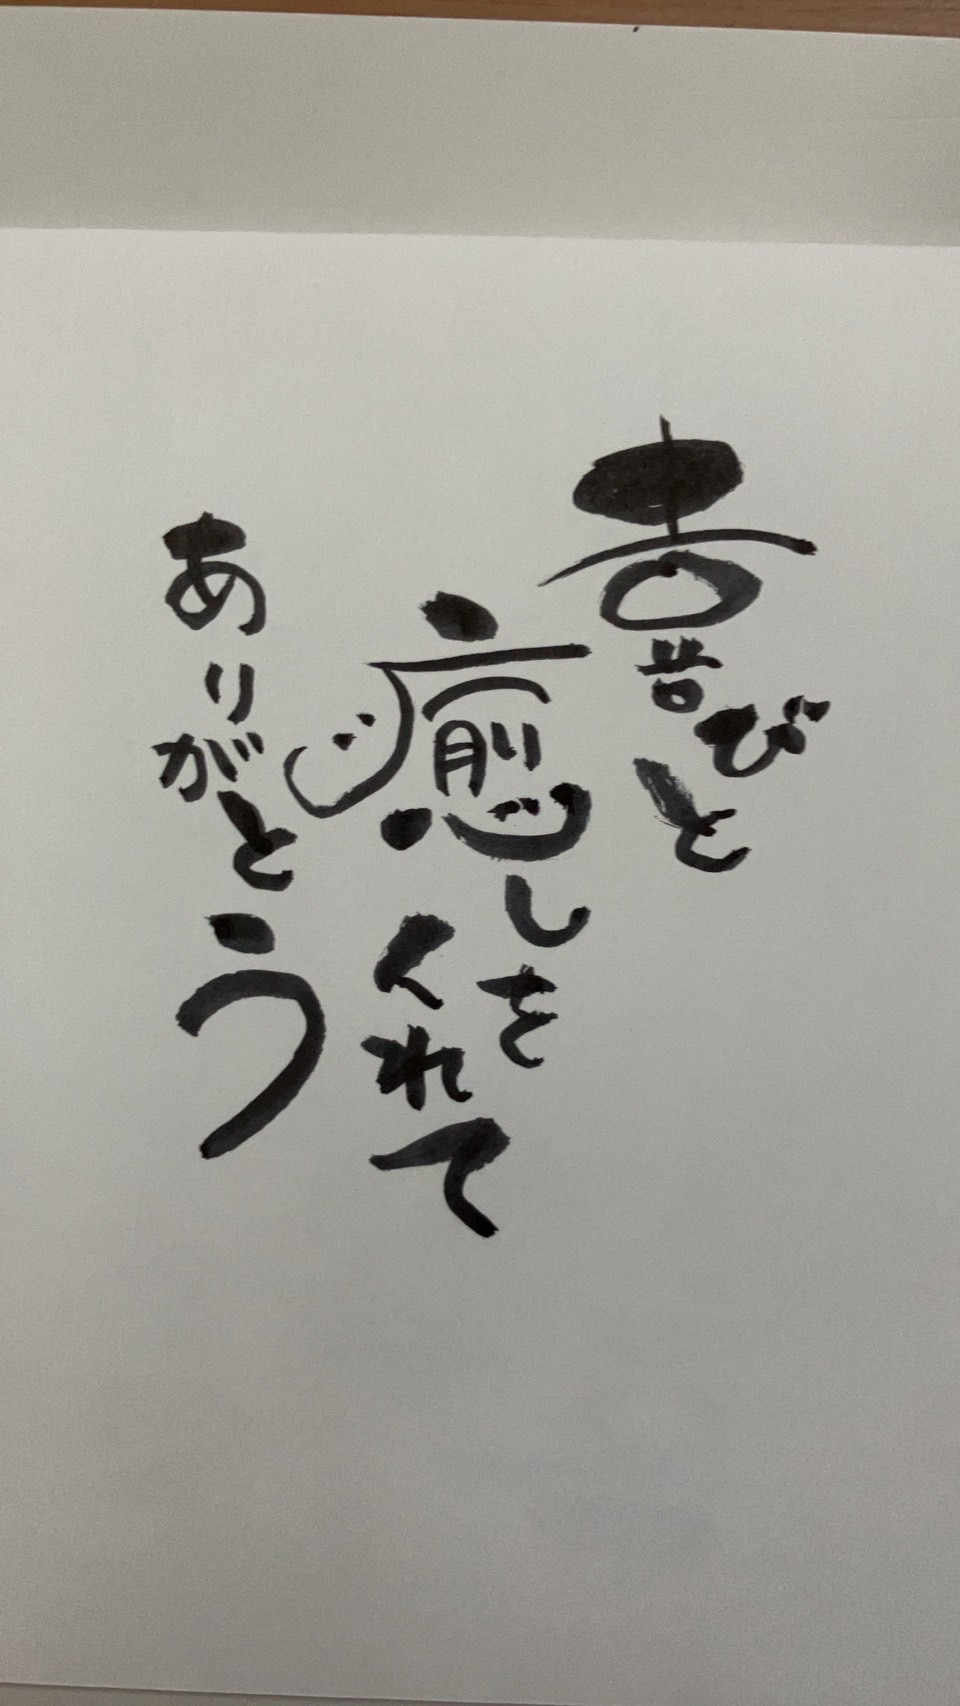 喜びと
癒しを
くれて
ありがとう